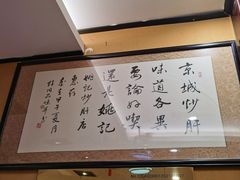 京城炒肝
味道各異
要論好喫
還是姚記
姚記炒肝店
惠存